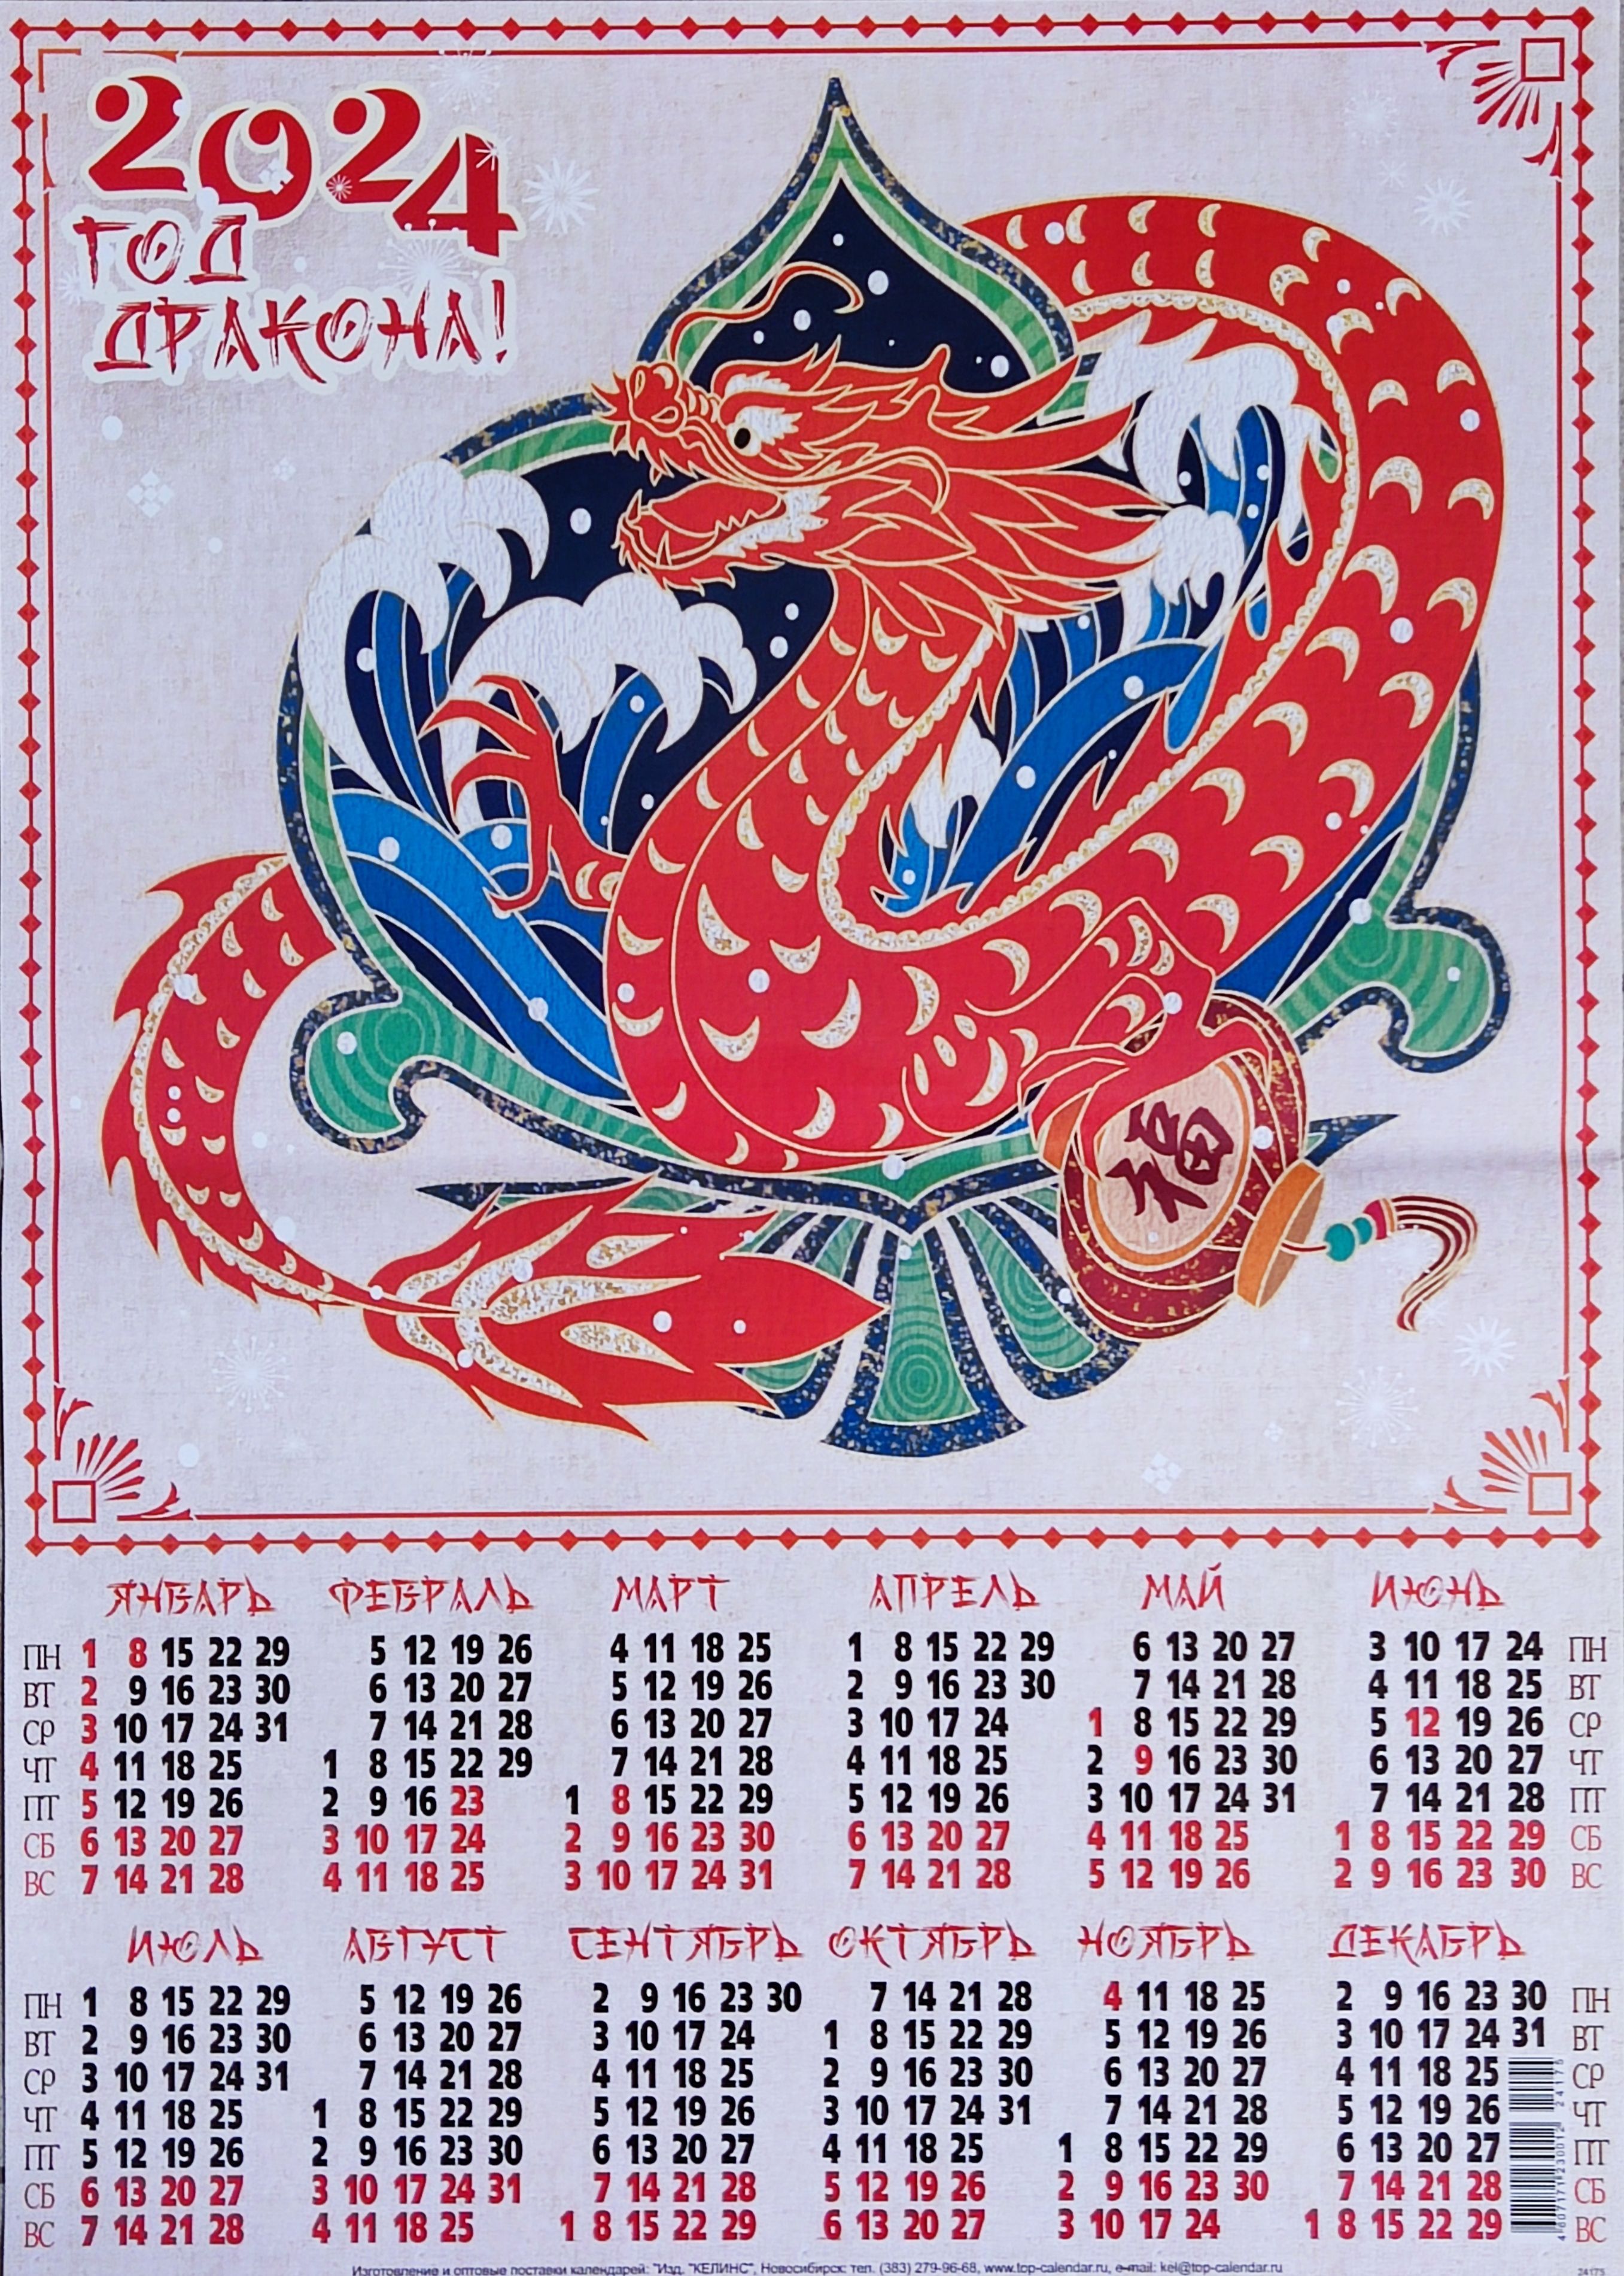 2024
ГОД
ДРАКОНА!
福
ЯНВАРЬ ФЕВРАЛЬ МАРТ АПРЕЛЬ МАЙ ИЮНЬ
ПН 1 8 15 22 29 5 12 19 26 4 11 18 25 1 8 15 22 29 6 13 20 27 3 10 17 24 ПН
ВТ 2 9 16 23 30 6 13 20 27 5 12 19 26 2 9 16 23 30 7 14 21 28 4 11 18 25 ВТ
СР 3 10 17 24 31 7 14 21 28 6 13 20 27 3 10 17 24 1 8 15 22 29 5 12 19 26 СР
ЧТ 4 11 18 25 1 8 15 22 29 7 14 21 28 4 11 18 25 2 9 16 23 30 6 13 20 27 ЧТ
ПТ 5 12 19 26 2 9 16 23 1 8 15 22 29 5 12 19 26 3 10 17 24 31 7 14 21 28 ПТ
СБ 6 13 20 27 3 10 17 24 2 9 16 23 30 6 13 20 27 4 11 18 25 1 8 15 22 29 СБ
ВС 7 14 21 28 4 11 18 25 3 10 17 24 31 7 14 21 28 5 12 19 26 2 9 16 23 30 ВС
ИЮЛЬ АВГУСТ СЕНТЯБРЬ ОКТЯБРЬ НОЯБРЬ ДЕКАБРЬ
ПН 1 8 15 22 29 5 12 19 26 2 9 16 23 30 7 14 21 28 4 11 18 25 2 9 16 23 30 ПН
ВТ 2 9 16 23 30 6 13 20 27 3 10 17 24 1 8 15 22 29 5 12 19 26 3 10 17 24 31 ВТ
СР 3 10 17 24 31 7 14 21 28 4 11 18 25 2 9 16 23 30 6 13 20 27 4 11 18 25 СР
ЧТ 4 11 18 25 1 8 15 22 29 5 12 19 26 3 10 17 24 31 7 14 21 28 5 12 19 26 ЧТ
ПТ 5 12 19 26 2 9 16 23 30 6 13 20 27 4 11 18 25 1 8 15 22 29 6 13 20 27 ПТ
СБ 6 13 20 27 3 10 17 24 31 7 14 21 28 5 12 19 26 2 9 16 23 30 7 14 21 28 СБ
ВС 7 14 21 28 4 11 18 25 1 8 15 22 29 6 13 20 27 3 10 17 24 1 8 15 22 29 ВС
Изготовление и оптовые поставки календарей: "Изд. "КЕЛИНС", Новосибирск: тел. (383) 279-96-68, www.top-calendar.ru, e-mail: kel@top-calendar.ru
24175